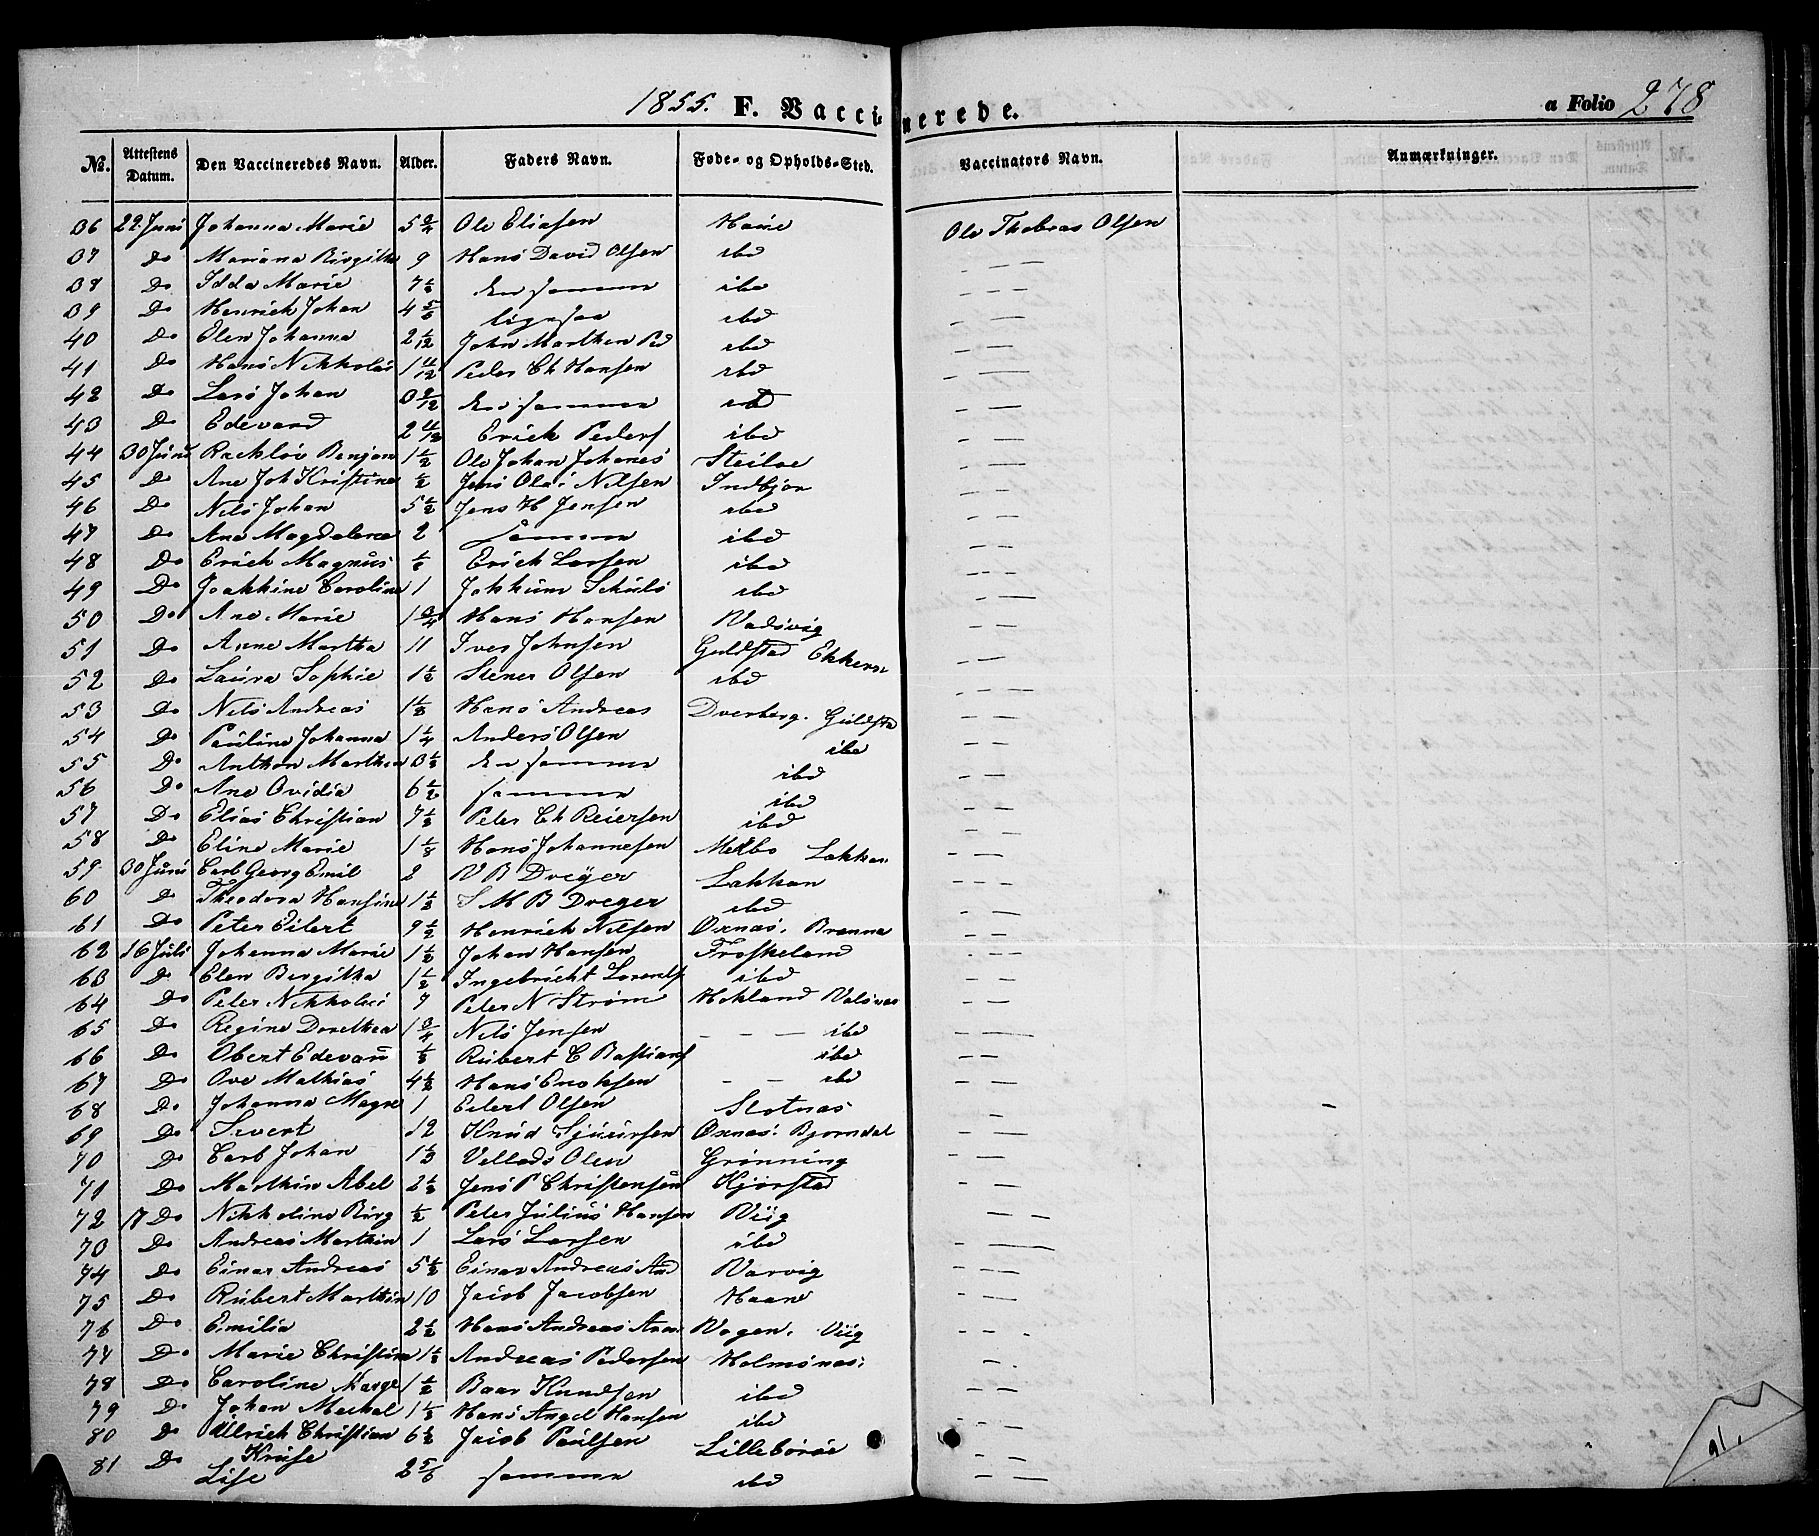 1855. F. Vaccinerede. a Folio 278
No. Attestens Datum. Den Vaccineredes Navn. Alder. Faders Navn. Føde- og Opholds-Sted. Vaccinators Navn. Anmærkninger.
36 22 Juni Johanna Marie 5 3/4 Ole Eliasen Haine Ole Thobias Olsen
37 Do Mariana Birgitha 9 Hans David Olsen ibd — —
38 Do Idda Marie 7 1/2 den samme ibd — —
39 Do Henrich Johan 4 5/6 ligesaa ibd — —
40 Do Elen Johanna 2 1/12 John Marthen Ped ibd — —
41 Do Hans Nikholai 1 4/12 Peder Ch Hansen ibd — —
42 Do Lars Johan 0 9/12 den samme ibd — —
43 Do Edevard 2 4/12 Erich Peders ibd — —
44 30 Juni Rachlov Benjon 1 1/2 Ole Johan Johanes Steiloe — —
45 Do Ane Joh Kristine 1/2 Jens Olai Nilsen Indbjor — —
46 Do Nils Johan 5 1/2 Jens H Jensen ibd — —
47 Do Ane Magdalena 2 Samme ibd — —
48 Do Erich Magnus 1/6 Erich Larsen ibd — —
49 Do Joakkine Caroline 1 Jokkum Schuls ibd — —
50 Do Ane Marie 1 3/4 Hans Hansen Vadsvig — —
51 Do Anne Martha 11 Iver Johnsen Guldstad Ekkern — —
52 Do Laura Sophie 1 1/2 Stener Olsen ibd — —
53 Do Nils Andreas 1 1/3 Hans Andreas Dverberg. Guldsta — —
54 Do Pauline Johanna 1 1/4 Anders Olsen ibd — —
55 Do Anthon Marthin 0 1/3 den samme ibd — —
56 Do Ane Ovidia 6 1/2 samme ibd — —
57 Do Elias Christian 7 1/3 Peter Ch Reiersen ibd — —
58 Do Eline Marie 1 1/8 Hans Johannesen Melbo Lakkan — —
59 30 Juni Carl Georg Emil 2 V B Dreyer Lakkan — —
60 Do Theodora Hansine 1 1/3 S M B Dreyer ibd — —
61 Do Peter Eilert 9 1/2 Henrich Nilsen Oxnas. Brenna — —
62 16 Juli Johanna Marie 1 1/2 Johan Hansen Froskeland — —
63 Do Elen Birgitha 1 1/2 Ingebricht Lorents ibd — —
64 Do Peter Nikholai 7 Peter N Strøm Hokland Valsnas — —
65 Do Regine Dorethea 1 3/4 Nils Jensen — — — ibd — —
66 Do Obert Edevard 1/3 Rubert C Bastians ibd — —
67 Do Ove Mathias 4 1/2 Hans Enoksen — — ibd — —
68 Do Johanna Magre 1 Eilert Olsen Slotnas — —
69 Do Sivert 12 Knud Sjuursen Oxnas. Bjorndal — —
70 Do Carl Johan 1 1/3 Vellads Olen Grønning — —
71 Do Marthin Abel 2 1/3 Jens P Christensen Kjørstad — —
72 17 Do Nikholine Birg 1/2 Peter Julius Hansen Viig — —
70 Do Andreas Marthin 1 Lars Larsen ibd — —
74 Do Einar Andreas 5 1/2 Einar Andreas And Varvig — —
75 Do Rubert Marthin 10 Jacob Jacobsen Haane — —
76 Do Emilia 2 1/2 Hans Andreas Vogen. Viig — —
77 Do Marie Christine 1 1/3 Andreas Pedersen Holmsnas. — —
78 Do Caroline Marge 1 1/2 Baar Knudsen ibd — —
79 Do Johan Meikal 1 1/3 Hans Angel Hansen ibd — —
80 Do Ullrich Christian 6 1/2 Jacob Paulsen Lilleboroe — —
Kruse
81 Do Lise 2 5/6 samme ibd — —
91.